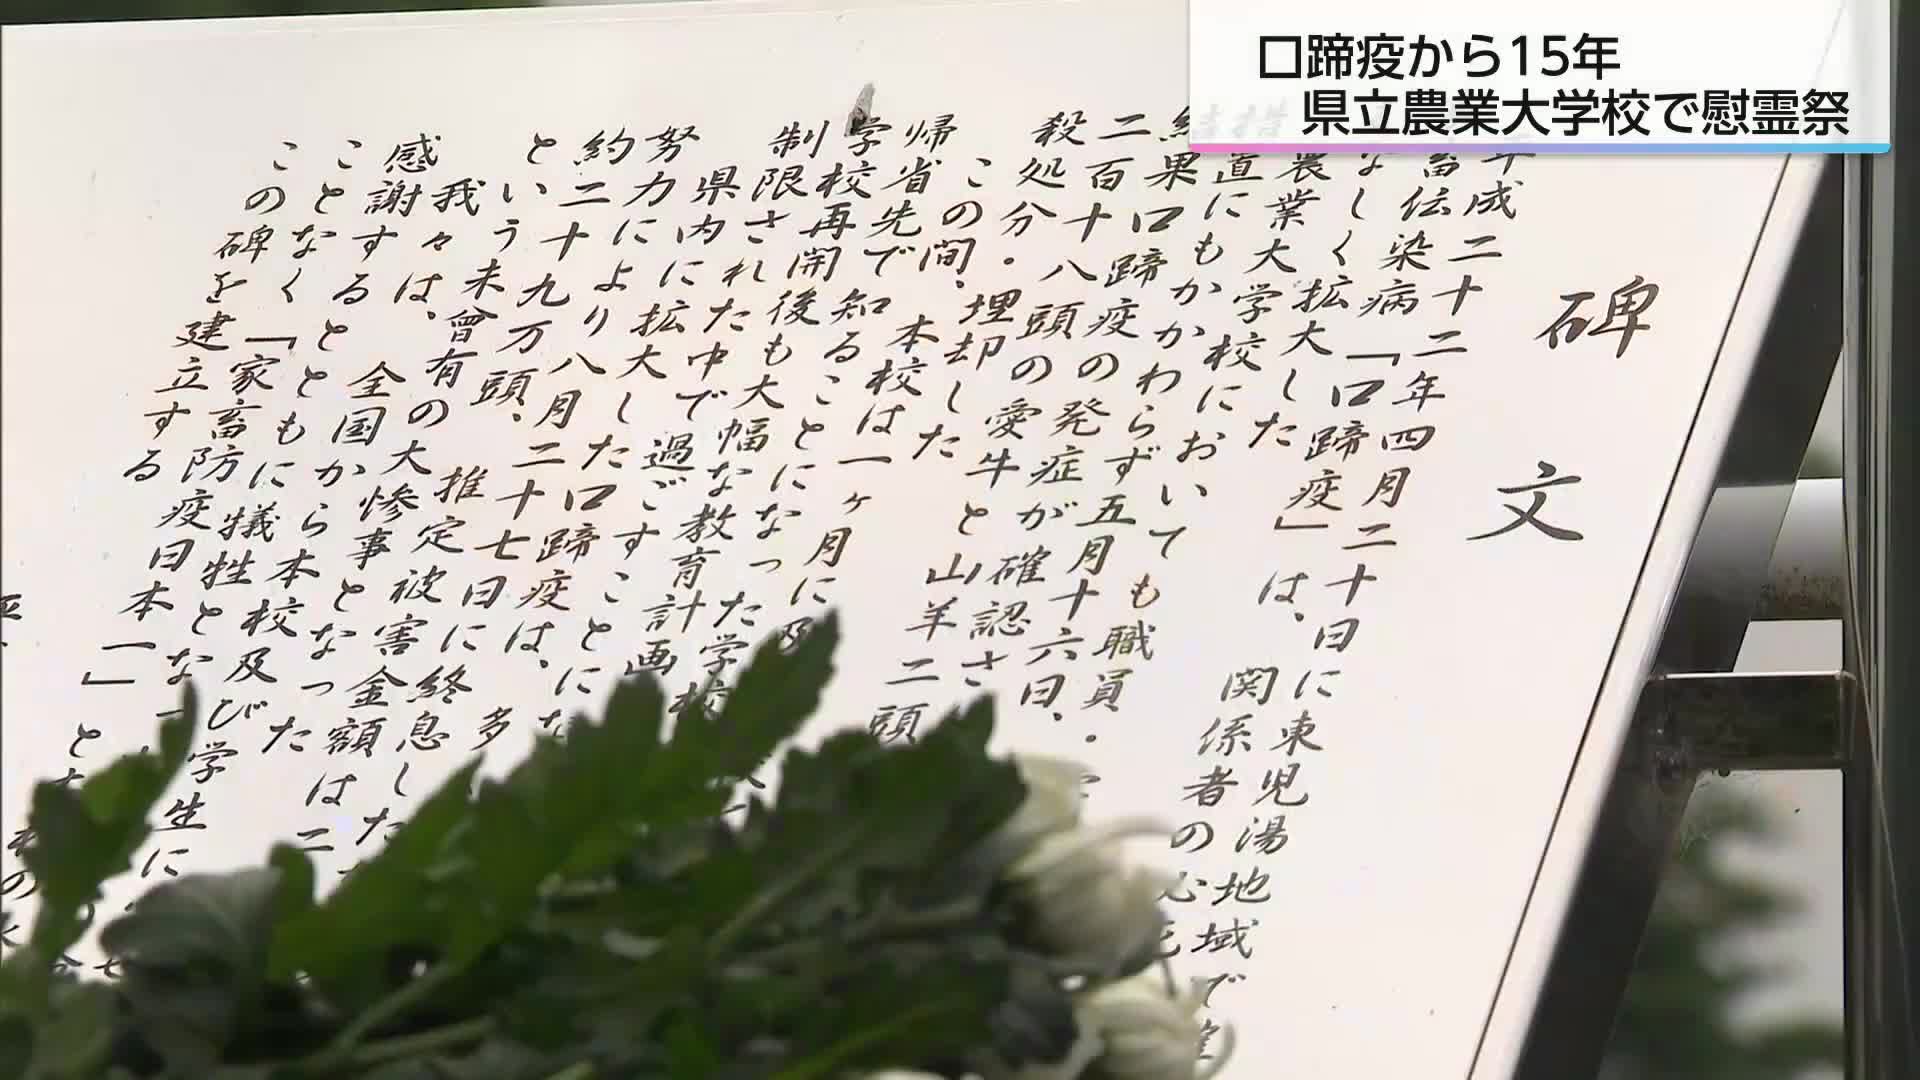 口蹄疫から15年
県立農業大学校で慰霊祭
碑文
成二十二年四月二十日に東児湯地域で
畜伝染病「口蹄疫」は、関係者の
なしく拡大した
農業大学校においても職員・
措置にもかかわらず五月十六日、
結果口蹄疫の発症が確認さ
二百十八頭の愛牛と山羊二頭
殺処分・埋却した
この間、本校は一ヶ月に及
帰省先で知ることになった学校
学校再開後も大幅な教育計画
制限された中で過ごすことにな
県内に拡大した口蹄疫は、多
努力により八月二十七日に終息した
約二十九万頭、推定被害金額は二
という未曾有の大惨事となった
我々は、全国から本校及び学生に
感謝するとともに犠牲となっ
ことなく「家畜防疫日本一」と
この碑を建立する